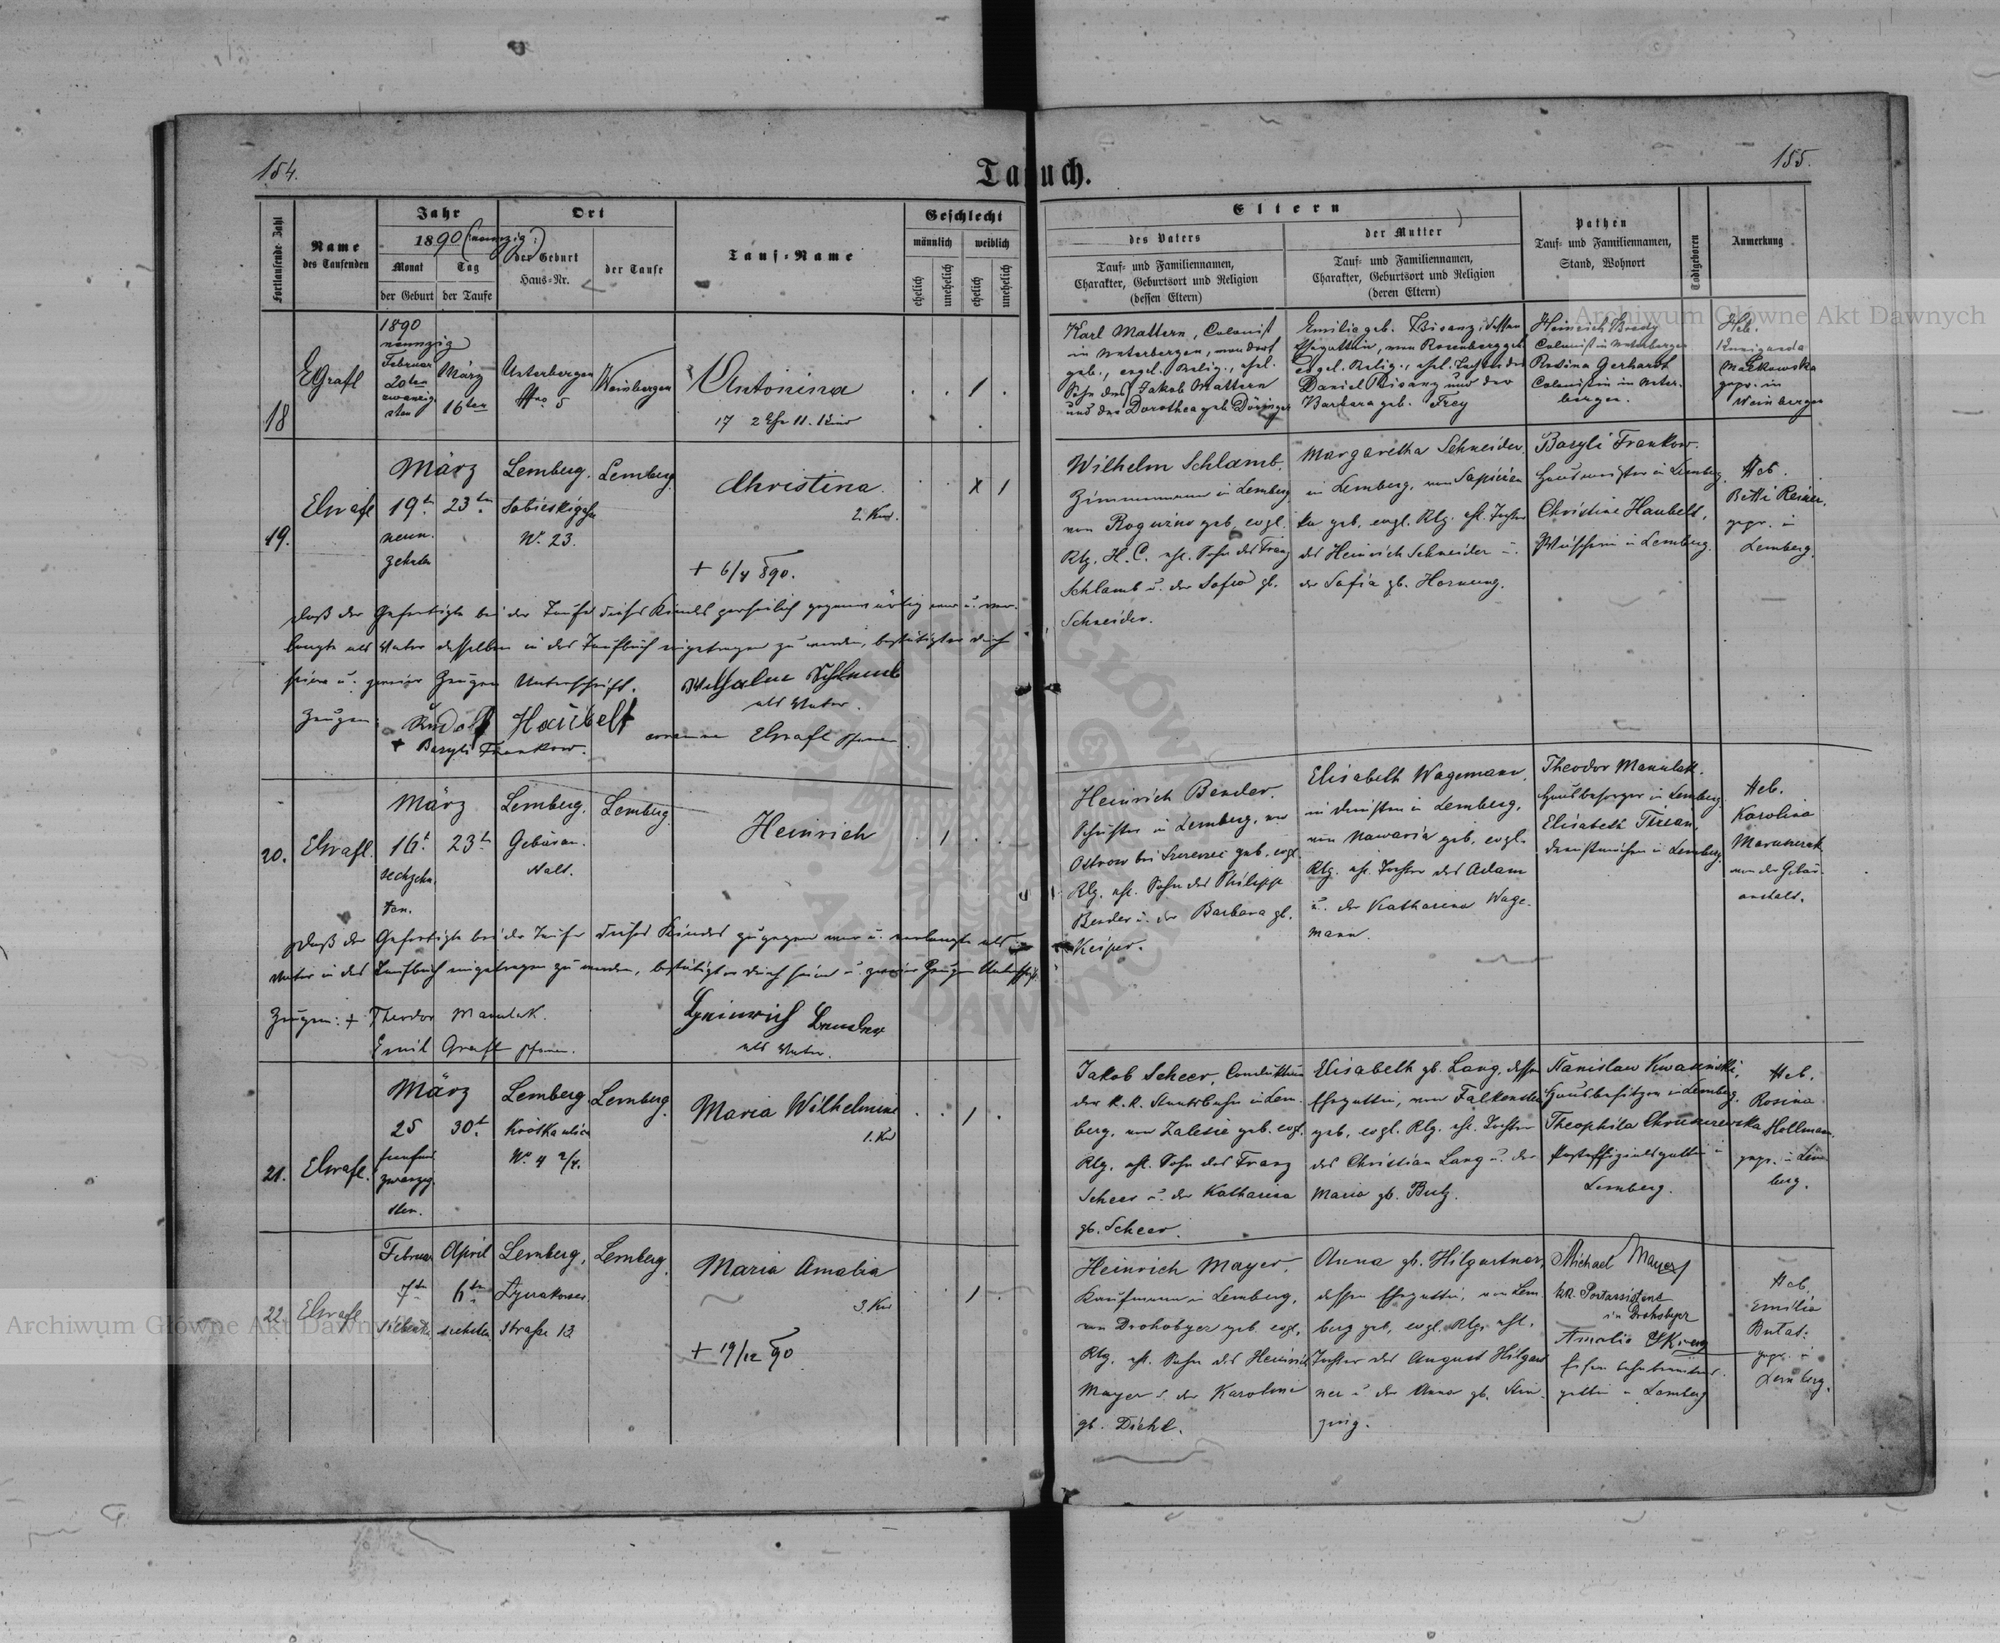 154.
155.
Taufbuch.
Fortlaufende Zahl
Name
des Taufenden
Jahr
1890 (neunzig:)
Monat
Tag
der Geburt
der Taufe
Ort
der Geburt
Haus=Nr.
der Taufe
Tauf=Name
Geschlecht
männlich
weiblich
ehelich
unehelich
ehelich
unehelich
Eltern
des Vaters
Tauf= und Familiennamen,
Charakter, Geburtsort und Religion
(dessen Eltern)
der Mutter
Tauf= und Familiennamen,
Charakter, Geburtsort und Religion
(deren Eltern)
Pathen
Tauf= und Familiennamen,
Stand, Wohnort
Todtgeboren
Anmerkung
18
EGrafl
1890
neunzig
Februar
20ten
zwanzig-
sten
März
16ten
Unterbergen
Nro. 5
Weinbergen
Antonina
17 2 Ehe 11. Kind
1
Karl Mattern, Colonist
in Unterbergen, von dort
geb., evgel. Relig., ehel.
Sohn des Jakob Mattern
und der Dorothea geb. Döringer
Emilie geb. Bisanz, dessen
Ehegattin, von Rosenberg geb.
evgel. Relig., ehel. Tochter des
Daniel Bisanz und der
Barbara geb. Frey
Heinrich Bredy
Colonist in Unterbergen
Rosina Gerhardt
Colonistin in Unter-
bergen.
Heb.
Kunigunda
Markowska
gepr. in
Weinbergen
19.
EGrafl
März
19t
neun-
zehnten
23ten
Lemberg.
Sobieskigasse
No. 23.
Lemberg
Christina.
2. Kind.
+ 6/4 890.
x 1
Wilhelm Schlamb,
Zimmermann in Lemberg
von Rogwizno geb. evgl.
Rlg. H. C. ehl. Sohn des Franz
Schlamb u. der Sofia gb.
Schneider.
Margaretha Schneider
in Lemberg, von Sapieżan
ka geb. evgl. Rlg. ehl. Tochter
des Heinrich Schneider u.
der Sofia gb. Hornung.
Bazyli Frankow.
Hausmeister in Lemberg
Christine Haubelt,
Wäscherin in Lemberg.
Heb.
Betti Reiner,
gepr. in
Lemberg.
Daß der Gefertigte bei der Taufe dieses Kindes persönlich gegenwärtig war u. ver-
langte als Vater desselben in das Taufbuch eingetragen zu werden, bestätigter durch
seine u. zweier Zeugen Unterschrift.
Wilhelm Schlamb
als Vater.
Zeugen: Rudolf Haubelt
+ Bazyli Frankow.
EGrafl Pfarrer.
20.
EGrafl.
März
16t
sechzehn-
ten.
23t
Lemberg.
Gebäran-
stalt.
Lemberg.
Heinrich
1
Heinrich Bender.
Schuster in Lemberg, von
Ostrow bei Szczerzec geb. evgl.
Rlg. ehl. Sohn des Philipp
Bender u. der Barbara gb.
Keiper.
Elisabeth Wagemann
im Dienste in Lemberg,
von Nawaria geb. evgl.
Rlg. ehl. Tochter des Adam
u. der Katharina Wage-
mann.
Theodor Manulak.
Hausbesorger in Lemberg
Elisabeth Terean,
Dienstmädchen in Lemberg
Heb.
Karolina
von der Gebär-
anstalt.
Daß der Gefertigte bei der Taufe dieses Kindes zugegen war u. verlangte als
Vater in das Taufbuch eingetragen zu werden, bestätigter durch seine u. zweier Zeugen Unterschrift.
Zeugen: + Theodor Manulak.
Emil Grafl Pfarrer.
Heinrich Bender
als Vater.
21.
EGrafl.
März
25
fünfund
zwanzig-
sten.
30t
Lemberg
Krótka ulica
No 4 2/4.
Lemberg.
Maria Wilhelmine
1. Kd
1
Jakob Scheer, Condukteur
der K. K. Staatsbahn in Lem-
berg, von Zalesie geb. evgl.
Rlg. ehl. Sohn des Franz
Scheer u. der Katharina
gb. Scheer.
Elisabeth gb. Lang, dessen
Ehegattin, von Falkenstein
geb. evgl. Rlg. ehl. Tochter
des Christian Lang u. der
Maria gb. Butz.
Stanislaw Kwasinski,
Hausbesitzer in Lemberg,
Postoffizialsgattin in
Lemberg.
Heb.
Rosina
Hellmann.
gepr. in Lem-
berg.
22
EGrafl
Februar
7ten
siebenten
April
6ten
sechsten
Lemberg,
Łyczakower
Straße 13
Lemberg.
Maria Amalia
3. Kd
+ 19/12 90
1
Heinrich Mayer.
Kaufmann in Lemberg,
von Drohobycz geb. evgl.
Rlg. ehl. Sohn des Heinrich
Mayer u. der Karoline
gb. Dickl.
Anna gb. Hilgartner,
dessen Ehegattin, von Lem-
berg geb. evgl. Rlg. ehl.
Tochter des August Hilgart
ner u. der Anna gb. Stein-
zwig.
Michael Mayer
kk Postassistent
in Drohobycz
Amalie
Eisenbahnbeamtens-
gattin in Lemberg
Heb.
Emilia
Butat.
gepr. in
Lemberg.
Archiwum Główne Akt Dawnych
Archiwum Główne Akt Dawnych
ARCHIWUM GŁÓWNE AKT DAWNYCH